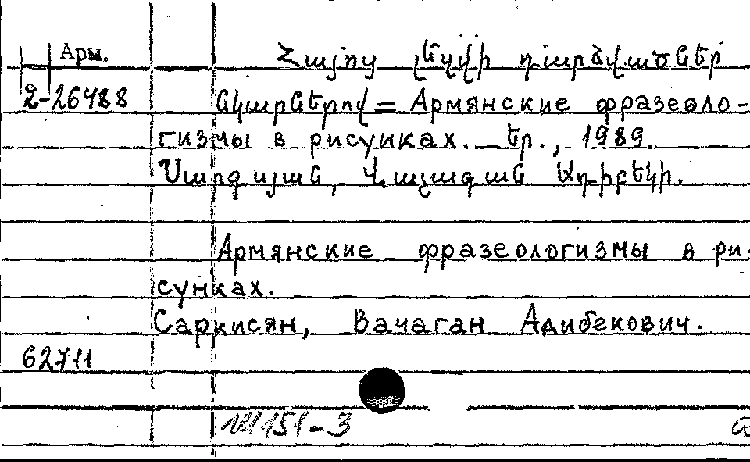 Арм. Հայոց լեզվի դարձվածներ
2-26488 նկարներով = Армянские фразеоло-
гизмы в рисунках. — Եր., 1989.
Սարգսյան, Վաչագան Ադիբեկի.
Армянские фразеологизмы в ри-
сунках.
Саркисян, Вачаган Адибекович.
62711
151-3